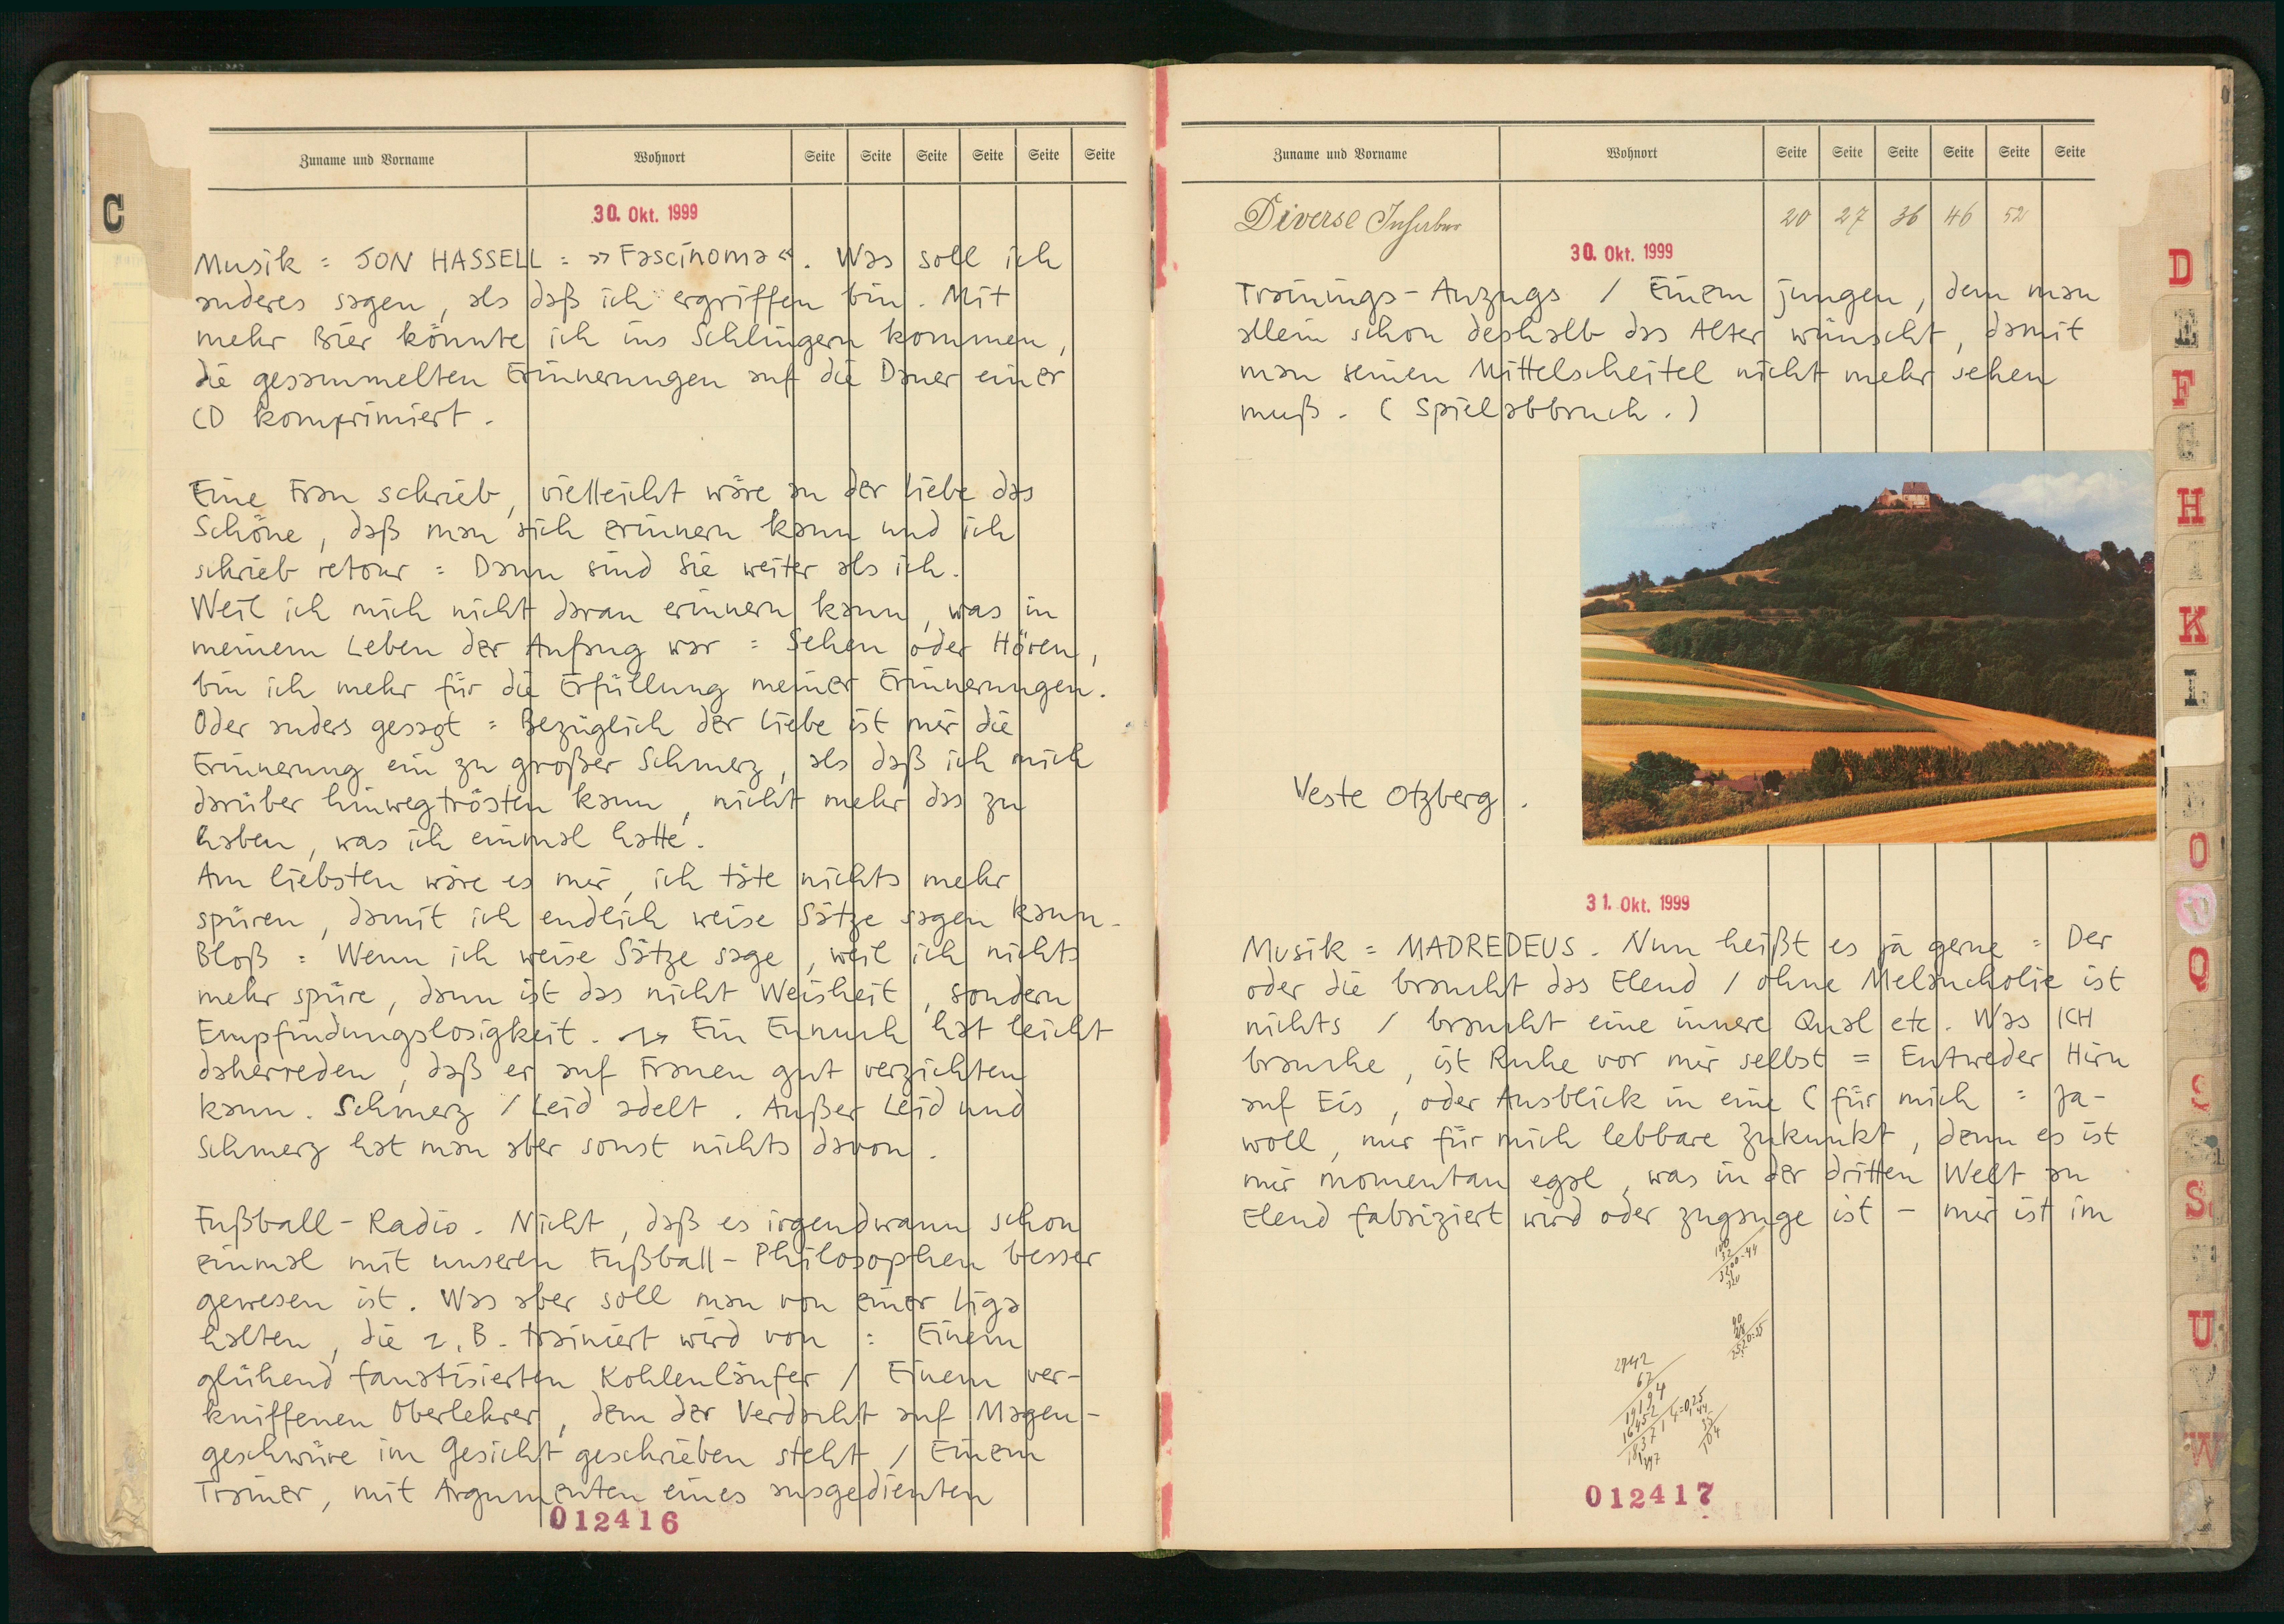 C
Zuname und Vorname Wohnort Seite Seite Seite Seite Seite Seite
30. Okt. 1999
Musik = JON HASSELL = »Fascinoma«. Was soll ich
anderes sagen, als daß ich ergriffen bin. Mit
mehr Bier könnte ich ins Schlingern kommen,
die gesammelten Erinnerungen auf die Dauer einer
CD komprimiert.
Eine Frau schrieb, vielleicht wäre an der Liebe das
Schöne, daß man sich erinnern kann und ich
schrieb retour = Dann sind Sie weiter als ich.
Weil ich mich nicht daran erinnern kann, was in
meinem Leben der Anfang war = Sehen oder Hören,
bin ich mehr für die Erfüllung meiner Erinnerungen.
Oder anders gesagt = Bezüglich der Liebe ist mir die
Erinnerung ein zu großer Schmerz, als daß ich mich
darüber hinwegtrösten kann, nicht mehr das zu
haben, was ich einmal hatte.
Am liebsten wäre es mir, ich täte nichts mehr
spüren, damit ich endlich weise Sätze sagen kann.
Bloß = Wenn ich weise Sätze sage, weil ich nichts
mehr spüre, dann ist das nicht Weisheit, sondern
Empfindungslosigkeit. Ein Eunuch hat leicht
daherreden, daß er auf Frauen gut verzichten
kann. Schmerz / Leid adelt. Außer Leid und
Schmerz hat man aber sonst nichts davon.
Fußball-Radio. Nicht, daß es irgendwann schon
einmal mit unseren Fußball-Philosophen besser
gewesen ist. Was aber soll man von einer Liga
halten, die z.B. trainiert wird von = Einem
glühend fanatisierten Kohlenläufer / Einem ver-
kniffenen Oberlehrer, dem der Verdacht auf Magen-
geschwüre im Gesicht geschrieben steht / Einem
Trainer, mit Argumenten eines ausgedienten
012416
Zuname und Vorname Wohnort Seite Seite Seite Seite Seite Seite
Diverse 20 27 36 46 52
30. Okt. 1999
Trainings-Anzugs / Einem jungen, dem man
allein schon deshalb das Alter wünscht, damit
man seinen Mittelscheitel nicht mehr sehen
muß. (Spielabbruch.)
Veste Otzberg.
31. Okt. 1999
Musik = MADREDEUS. Nun heißt es ja gerne = Der
oder die braucht das Elend / ohne Melancholie ist
nichts / braucht eine innere Qual etc. Was ICH
brauche, ist Ruhe vor mir selbst = Entweder Hirn
auf Eis, oder Ausblick in eine (für mich = Ja-
woll, nur für mich lebbare Zukunkt, denn es ist
mir momentan egal, was in der dritten Welt an
Elend fabriziert wird oder zugange ist – mir ist im
012417
D
F
H
K
L
O
P
Q
S
S
U
W